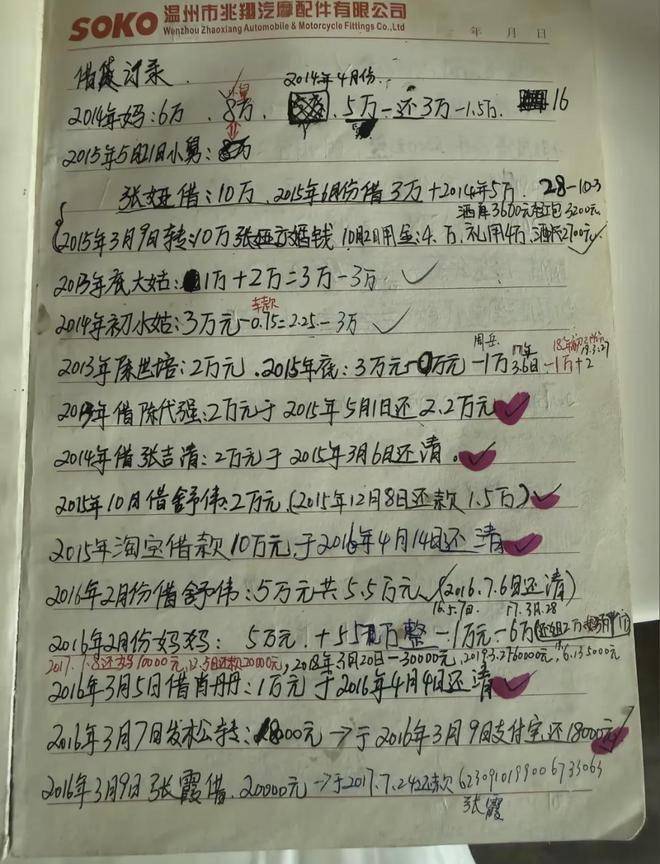 SOKO 温州市兆翔汽摩配件有限公司
Wenzhou Zhaoxiang Automobile & Motorcycle Fittings Co.,Ltd
年 月 日
借贷记录
2014年4月份
2014年妈:6万 . 8万 . 5万-还3万-1.5万. 16
2015年5月21日小舅: 8万
张娅借:10万 . 2015年1月份借3万+2014年5万 . 28-10-3
酒席3600元 红包3200元
2015年3月9日转:10万 张娅 结婚钱 10月2日用金:4.万. 礼用4万. 酒席2700元
2013年底大姑: 1万+2万=3万-3万
车款
2014年初小姑:3万元-0.75=2.25-3万
2013年陈世培:2万元 . 2015年底:3万元- 万元 -1万 -1万+2
2013年借陈代强:2万元于2015年5月1日还2.2万元
2014年借张吉清:2万元于2015年3月6日还清.
2015年10月借舒伟:2万元.(2015年12月8日还款1.5万)
2015年淘宝借款10万元于2016年4月14日还清
2016年2月份借舒伟:5万元共5.5万元(2016.7.6日还清)
16.5.7日. 17.3月.28
2016年2月份妈妈: 5万元.+5 万整-1万元-6万
2017.7.8还妈10000元,12.5日还款20000元,2018年3月20日-30000元,
2016年3月5日借肖丹丹:1万元于2016年4月4日还清
2016年3月7日 转: 8000元→于2016年3月9日支付宝还18000元
2016年3月9日张霞借.20000元→于2017.7.24还款 6230910199006733063
张霞